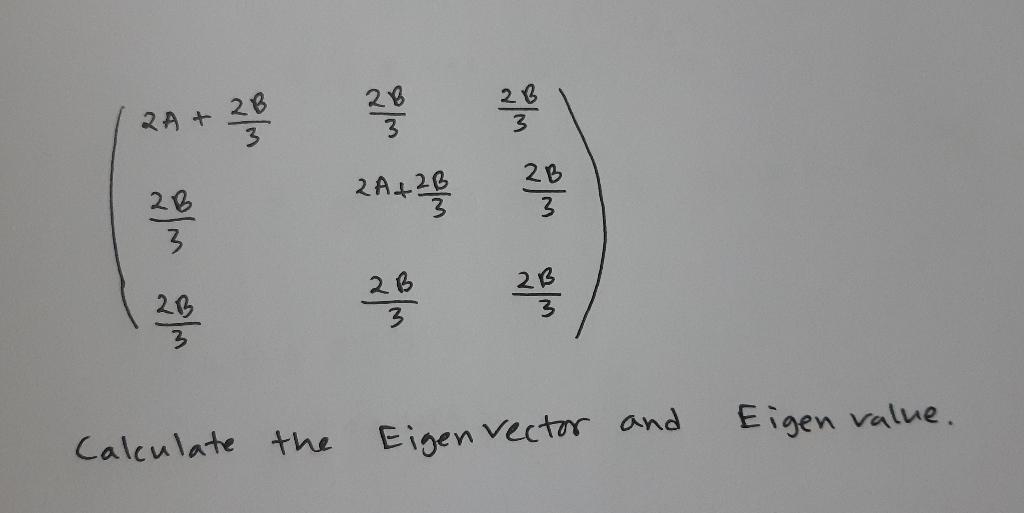 2A + 2B/3 2B/3 2B/3
2B/3 2A+2B/3 2B/3
2B/3 2B/3 2B/3
Calculate the Eigen vector and Eigen value.